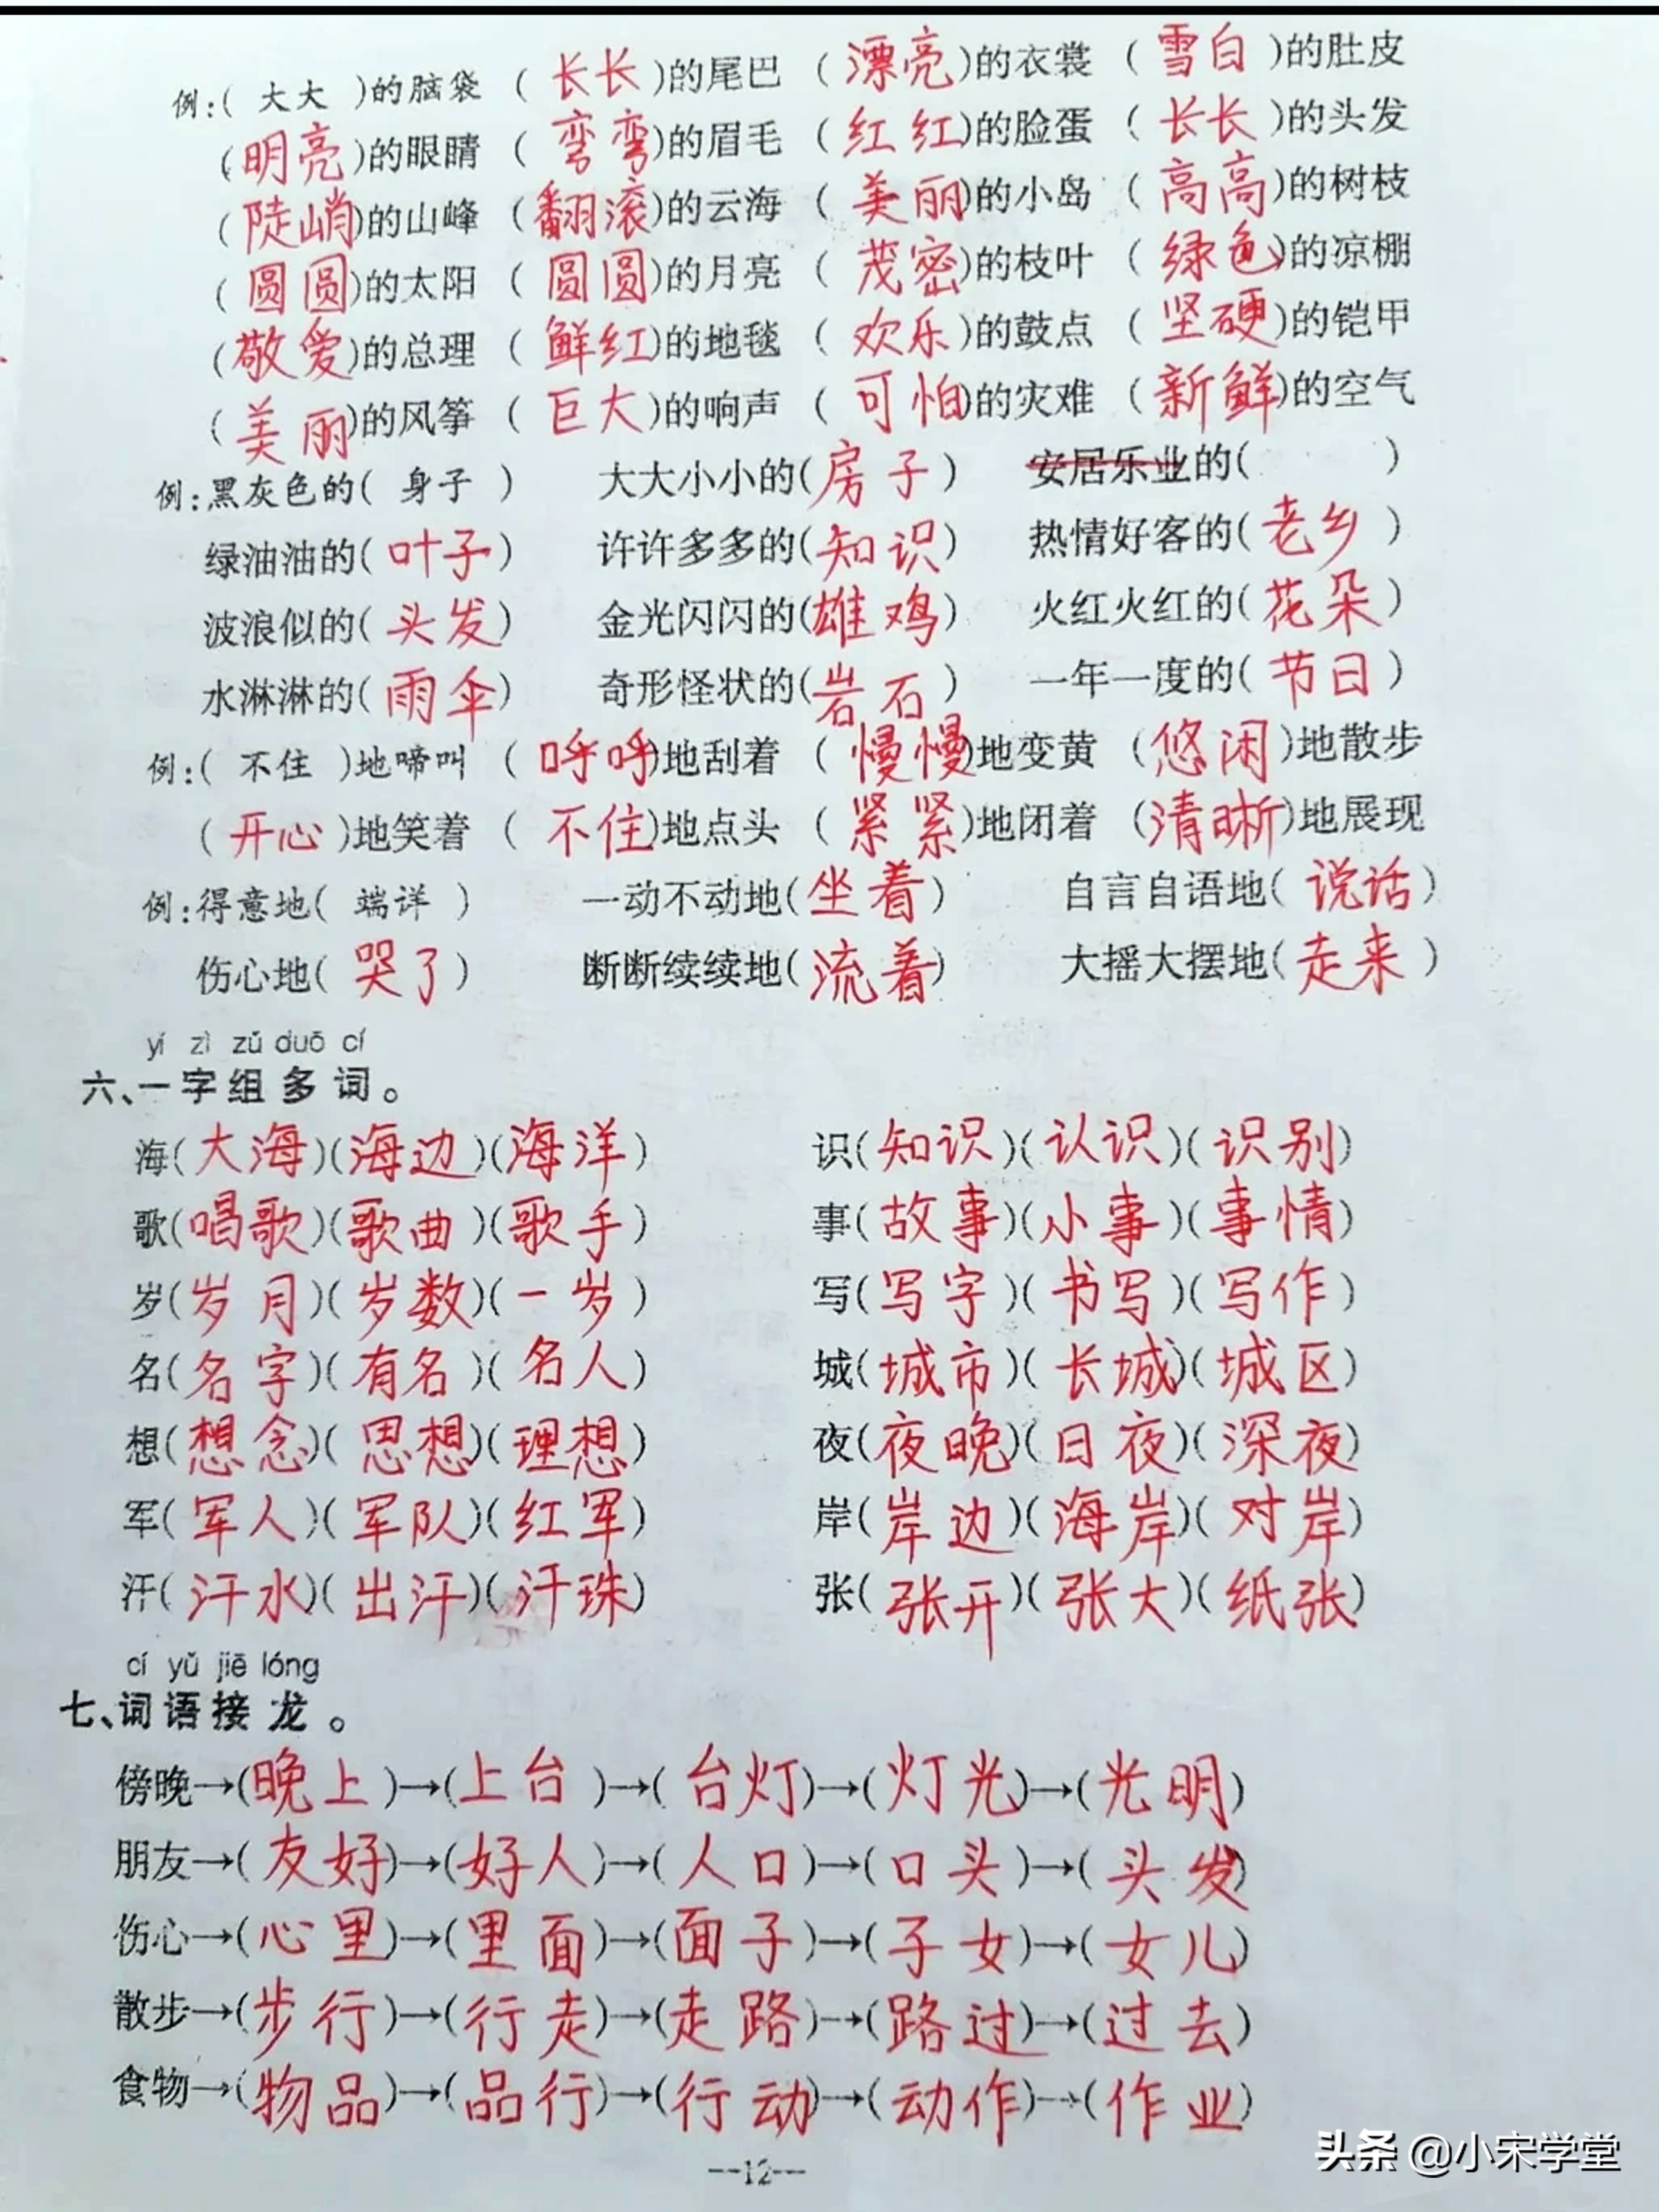 例:( 大大 )的脑袋 ( 长长 )的尾巴 ( 漂亮 )的衣裳 ( 雪白 )的肚皮
( 明亮 )的眼睛 ( 弯弯 )的眉毛 ( 红红 )的脸蛋 ( 长长 )的头发
( 陡峭 )的山峰 ( 翻滚 )的云海 ( 美丽 )的小岛 ( 高高 )的树枝
( 圆圆 )的太阳 ( 圆圆 )的月亮 ( 茂密 )的枝叶 ( 绿色 )的凉棚
( 敬爱 )的总理 ( 鲜红 )的地毯 ( 欢乐 )的鼓点 ( 坚硬 )的铠甲
( 美丽 )的风筝 ( 巨大 )的响声 ( 可怕 )的灾难 ( 新鲜 )的空气
例:黑灰色的( 身子 ) 大大小小的( 房子 ) 安居乐业的( )
绿油油的( 叶子 ) 许许多多的( 知识 ) 热情好客的( 老乡 )
波浪似的( 头发 ) 金光闪闪的( 雄鸡 ) 火红火红的( 花朵 )
水淋淋的( 雨伞 ) 奇形怪状的( 岩石 ) 一年一度的( 节日 )
例:( 不住 )地啼叫 ( 呼呼 )地刮着 ( 慢慢 )地变黄 ( 悠闲 )地散步
( 开心 )地笑着 ( 不住 )地点头 ( 紧紧 )地闭着 ( 清晰 )地展现
例:得意地( 端详 ) 一动不动地( 坐着 ) 自言自语地( 说话 )
伤心地( 哭了 ) 断断续续地( 流着 ) 大摇大摆地( 走来 )
yí zì zǔ duō cí
六、一字组多词。
海( 大海 )( 海边 )( 海洋 ) 识( 知识 )( 认识 )( 识别 )
歌( 唱歌 )( 歌曲 )( 歌手 ) 事( 故事 )( 小事 )( 事情 )
岁( 岁月 )( 岁数 )( 一岁 ) 写( 写字 )( 书写 )( 写作 )
名( 名字 )( 有名 )( 名人 ) 城( 城市 )( 长城 )( 城区 )
想( 想念 )( 思想 )( 理想 ) 夜( 夜晚 )( 日夜 )( 深夜 )
军( 军人 )( 军队 )( 红军 ) 岸( 岸边 )( 海岸 )( 对岸 )
汗( 汗水 )( 出汗 )( 汗珠 ) 张( 张开 )( 张大 )( 纸张 )
cí yǔ jiē lóng
七、词语接龙。
傍晚→( 晚上 )→( 上台 )→( 台灯 )→( 灯光 )→( 光明 )
朋友→( 友好 )→( 好人 )→( 人口 )→( 口头 )→( 头发 )
伤心→( 心里 )→( 里面 )→( 面子 )→( 子女 )→( 女儿 )
散步→( 步行 )→( 行走 )→( 走路 )→( 路过 )→( 过去 )
食物→( 物品 )→( 品行 )→( 行动 )→( 动作 )→( 作业 )
--12--
头条 @小宋学堂